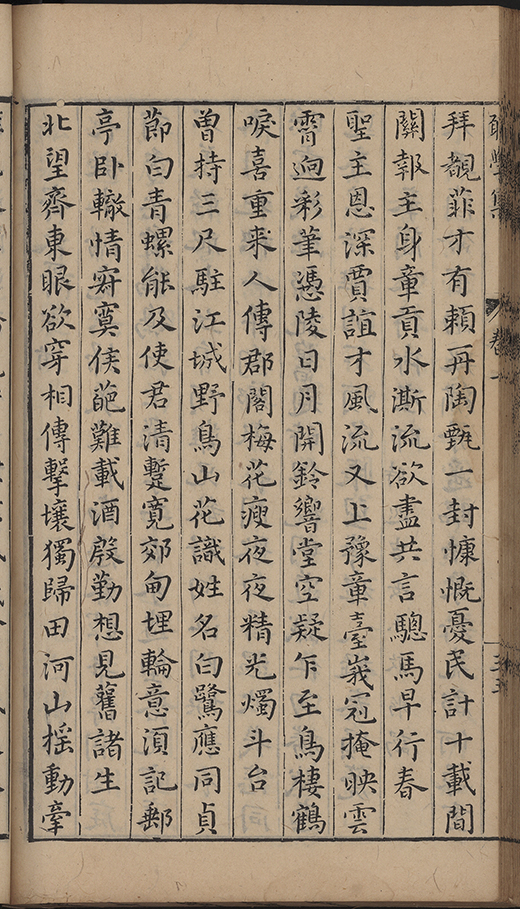 卷一
拜覯菲才有賴再陶甄一封慷慨憂民計十載間
關報主身章貢水澌流欲盡共言驄馬早行春
聖主恩深賈誼才風流又上豫章臺峩冠掩映雲
霄迥彩筆憑陵日月開鈴響堂空疑乍至鳥棲鶴
唳喜重來人傳郡閣梅花瘦夜夜精光燭斗台
曾持三尺駐江城野鳥山花識姓名白鷺應同貞
節白青螺能及使君清蹔寬郊甸埋輪意湏記郵
亭卧轍情寂寞侯葩難載酒殷勤想見舊諸生
北望齊東眼欲穿相傳擊壤獨歸田河山揺動牽